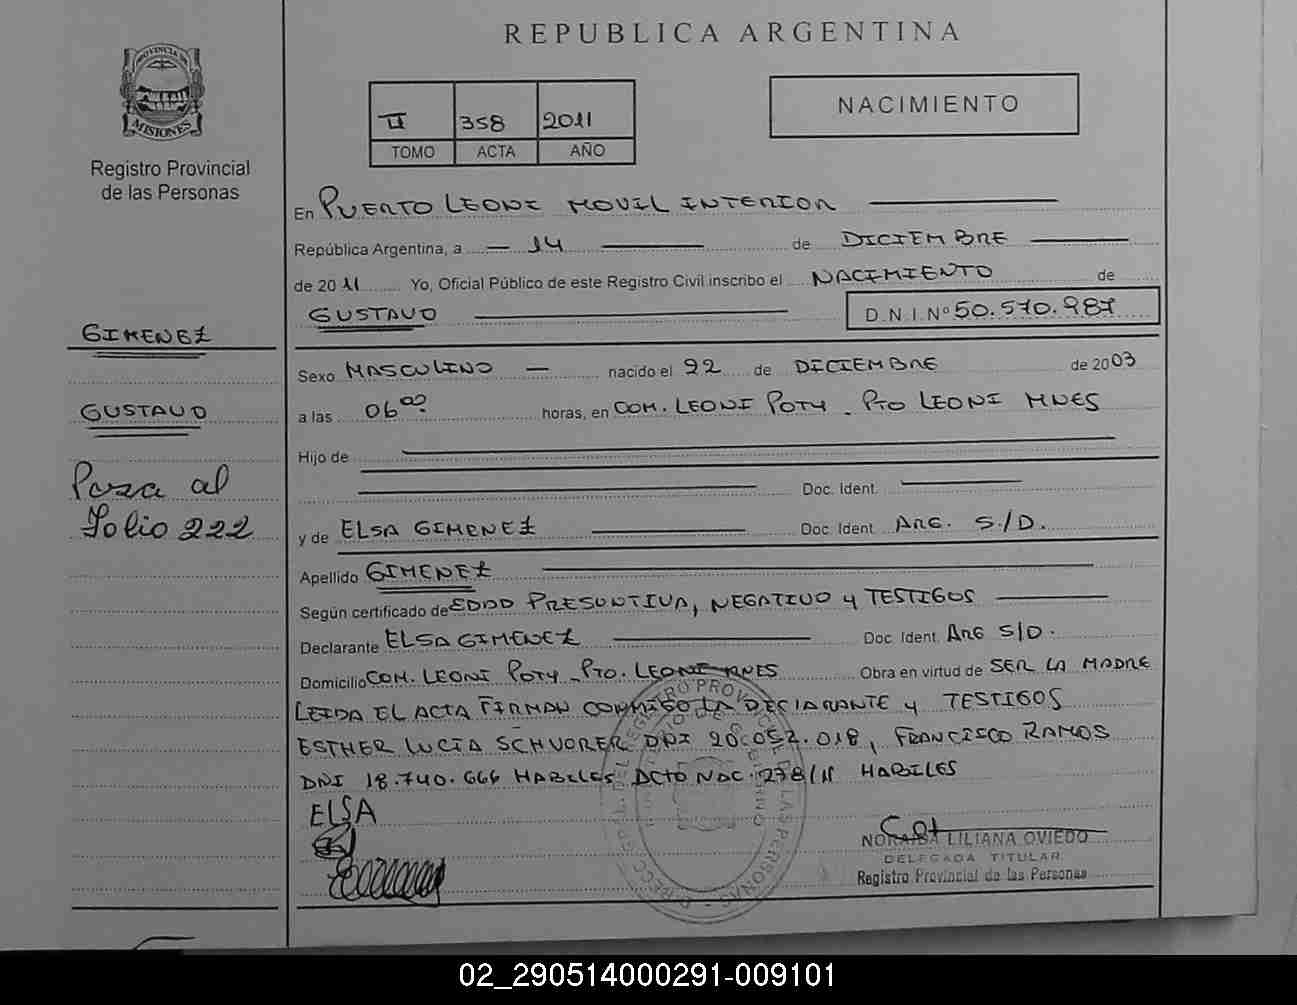 REPUBLICA ARGENTINA
PROVINCIA DE
MISIONES
Registro Provincial
de las Personas
II 358 2011
TOMO ACTA AÑO
NACIMIENTO
En PUERTO LEONI MOVIL INTERIOR
República Argentina, a 14 de DICIEMBRE
de 2011 Yo, Oficial Público de este Registro Civil inscribo el NACIMIENTO de
GUSTAVO D.N.I.Nº 50.570.987
GIMENEZ
GUSTAVO
Pasa al
Folio 222
Sexo MASCULINO nacido el 22 de DICIEMBRE de 2003
a las 06 00 horas, en COM. LEONI POTY - PTO LEONI MNES
Hijo de
Doc. Ident.
y de ELSA GIMENEZ Doc. Ident. ARG. S/D.
Apellido GIMENEZ
Según certificado de EDAD PRESUNTIVA, NEGATIVO y TESTIGOS
Declarante ELSA GIMENEZ Doc. Ident. ARG S/D.
Domicilio COM. LEONI POTY - PTO. LEONI MNES Obra en virtud de SER LA MADRE
LEIDA EL ACTA FIRMAN CONMIGO LA DECLARANTE y TESTIGOS
ESTHER LUCIA SCHVORER DNI 20.052.018, FRANCISCO RAMOS
DNI 18.740.666 HABILES ACTO NAC. 278/11 HABILES
ELSA
NORAIBA LILIANA OVIEDO
DELEGADA TITULAR
Registro Provincial de las Personas
02_290514000291-009101